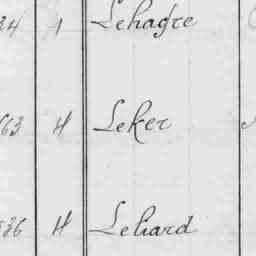 34 1 Lehagre
63 H Leker
536 H Leliard